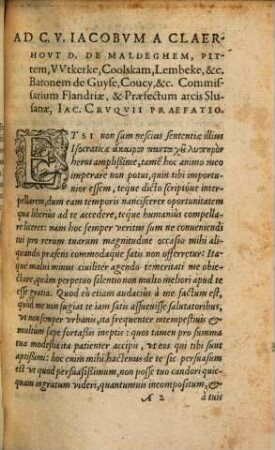 AD C. V. IACOBVM A CLAER-
HOVT D. DE MALDEGHEM, PIT-
tem, VVtkerke, Coolskam, Lembeke, &c.
Baronem de Guyse, Coucy, &c. Commis-
sarium Flandriæ, & Præfectum arcis Slu-
sanæ, IAC. CRVQVII PRAEFATIO.
ETSI non sum nescius sententiæ illius
Isocraticæ ἄκαιρον πανταχοῦ λυπηρὸν
heros amplissime, tamē hoc animo meo
imperare non potui, quin tibi importu-
nior essem, teque dicto scriptoque inter-
pellarem, dum eam temporis nanciscerer oportunitatem
qua liberius ad te accedere, teque humanius compella-
re liceret: nam hoc semper veritus sum ne conueniendi
tui pro rerum tuarum magnitudine occasio mihi ali-
quando præsens commodaque satis non offerretur: Ita-
que malui minus ciuiliter agendo temeritati me obie-
ctare, quàm perpetuo silentio non multo meliori apud te
esse gratia. Quod eò etiam audacius à me factum est,
quòd me non fugiat te iam assueuisse salutatoribus,
vt non semper vrbanis, ita frequenter intempestiuis &
multùm sæpe fortaßis ineptis: quos tamen pro summa
tua modestia ita patienter accipis, vt eos qui tibi sunt
aptißimi: hoc enim mihi hactenus de te sic persuasum
est vt quod persuasißimum, non posse tuo candori quic-
quam ingratum videri, quantumuis incompositum, &
A 2 à tuis